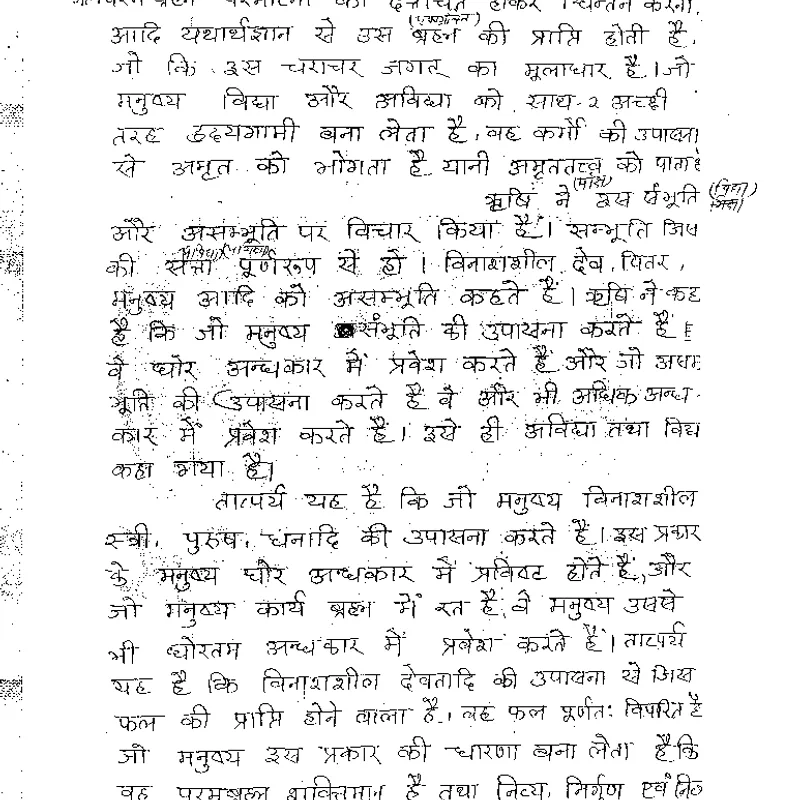 परमब्रह्म परमात्मा को दत्तचित होकर चिन्तन करना,
आदि यथार्थज्ञान से उस ब्रह्म की प्राप्ति होती है,
जो कि इस चराचर जगत् का मूलाधार है। जो
मनुष्य विद्या और अविद्या को साथ-२ अच्छी
तरह हृदयगामी बना लेता है, वह कर्मों की उपासना
से अमृत को भोगता है यानी अमृततत्त्व को पाता है
ऋषि ने इस संभूति
और असम्भूति पर विचार किया है। सम्भूति जिस
की सत्ता पूर्णरूप से हो। विनाशशील देव, पितर,
मनुष्य आदि को असम्भूति कहते हैं। ऋषि ने कहा
है कि जो मनुष्य संभूति की उपासना करते है।
वे घोर अन्धकार में प्रवेश करते हैं और जो असम
भूति की उपासना करते है वे और भी अधिक अन्ध
कार में प्रवेश करते है। इसे ही अविद्या तथा विद्य
कहा गया है।
तात्पर्य यह है कि जो मनुष्य विनाशशील
स्त्री, पुरुष, धनादि की उपासना करते है। इस प्रकार
के मनुष्य घोर अन्धकार में प्रविष्ट होते है, और
जो मनुष्य कार्य ब्रह्म में रत है, वे मनुष्य उससे
भी घोरतम अन्धकार में प्रवेश करते हैं। तात्पर्य
यह है कि विनाशशील देवतादि की उपासना से जिस
फल की प्राप्ति होने वाला है, वह फल पूर्णतः विपरित है
जो मनुष्य इस प्रकार की धारणा बना लेता है कि
वह परमब्रह्म शक्तिमान है तथा नित्य, निर्गुण एवं